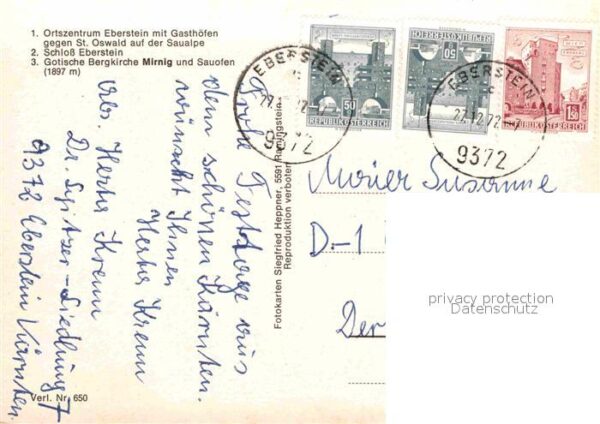 1. Ortszentrum Eberstein mit Gasthöfen
gegen St. Oswald auf der Saualpe
2. Schloß Eberstein
3. Gotische Bergkirche Mirnig und Sauofen
(1897 m)
Frohe Festtage aus
dem schönen Kärnten.
wünscht Ihnen
Herta Krenn
Abs Herta Krenn
Dr. Spitzer-Siedlung 7
9372 Eberstein Kärnten.
Verl. Nr. 650
Fotokarten Siegfried Heppner, 5591 Ramingstein
Reproduktion verboten
50
REPUBLIK ÖSTERREICH
50
REPUBLIK ÖSTERREICH
1.50
REPUBLIK ÖSTERREICH
EBERSTEIN
9372
EBERSTEIN
27.12.72
9372
Maier Susanne
D-1
Der
privacy protection
Datenschutz